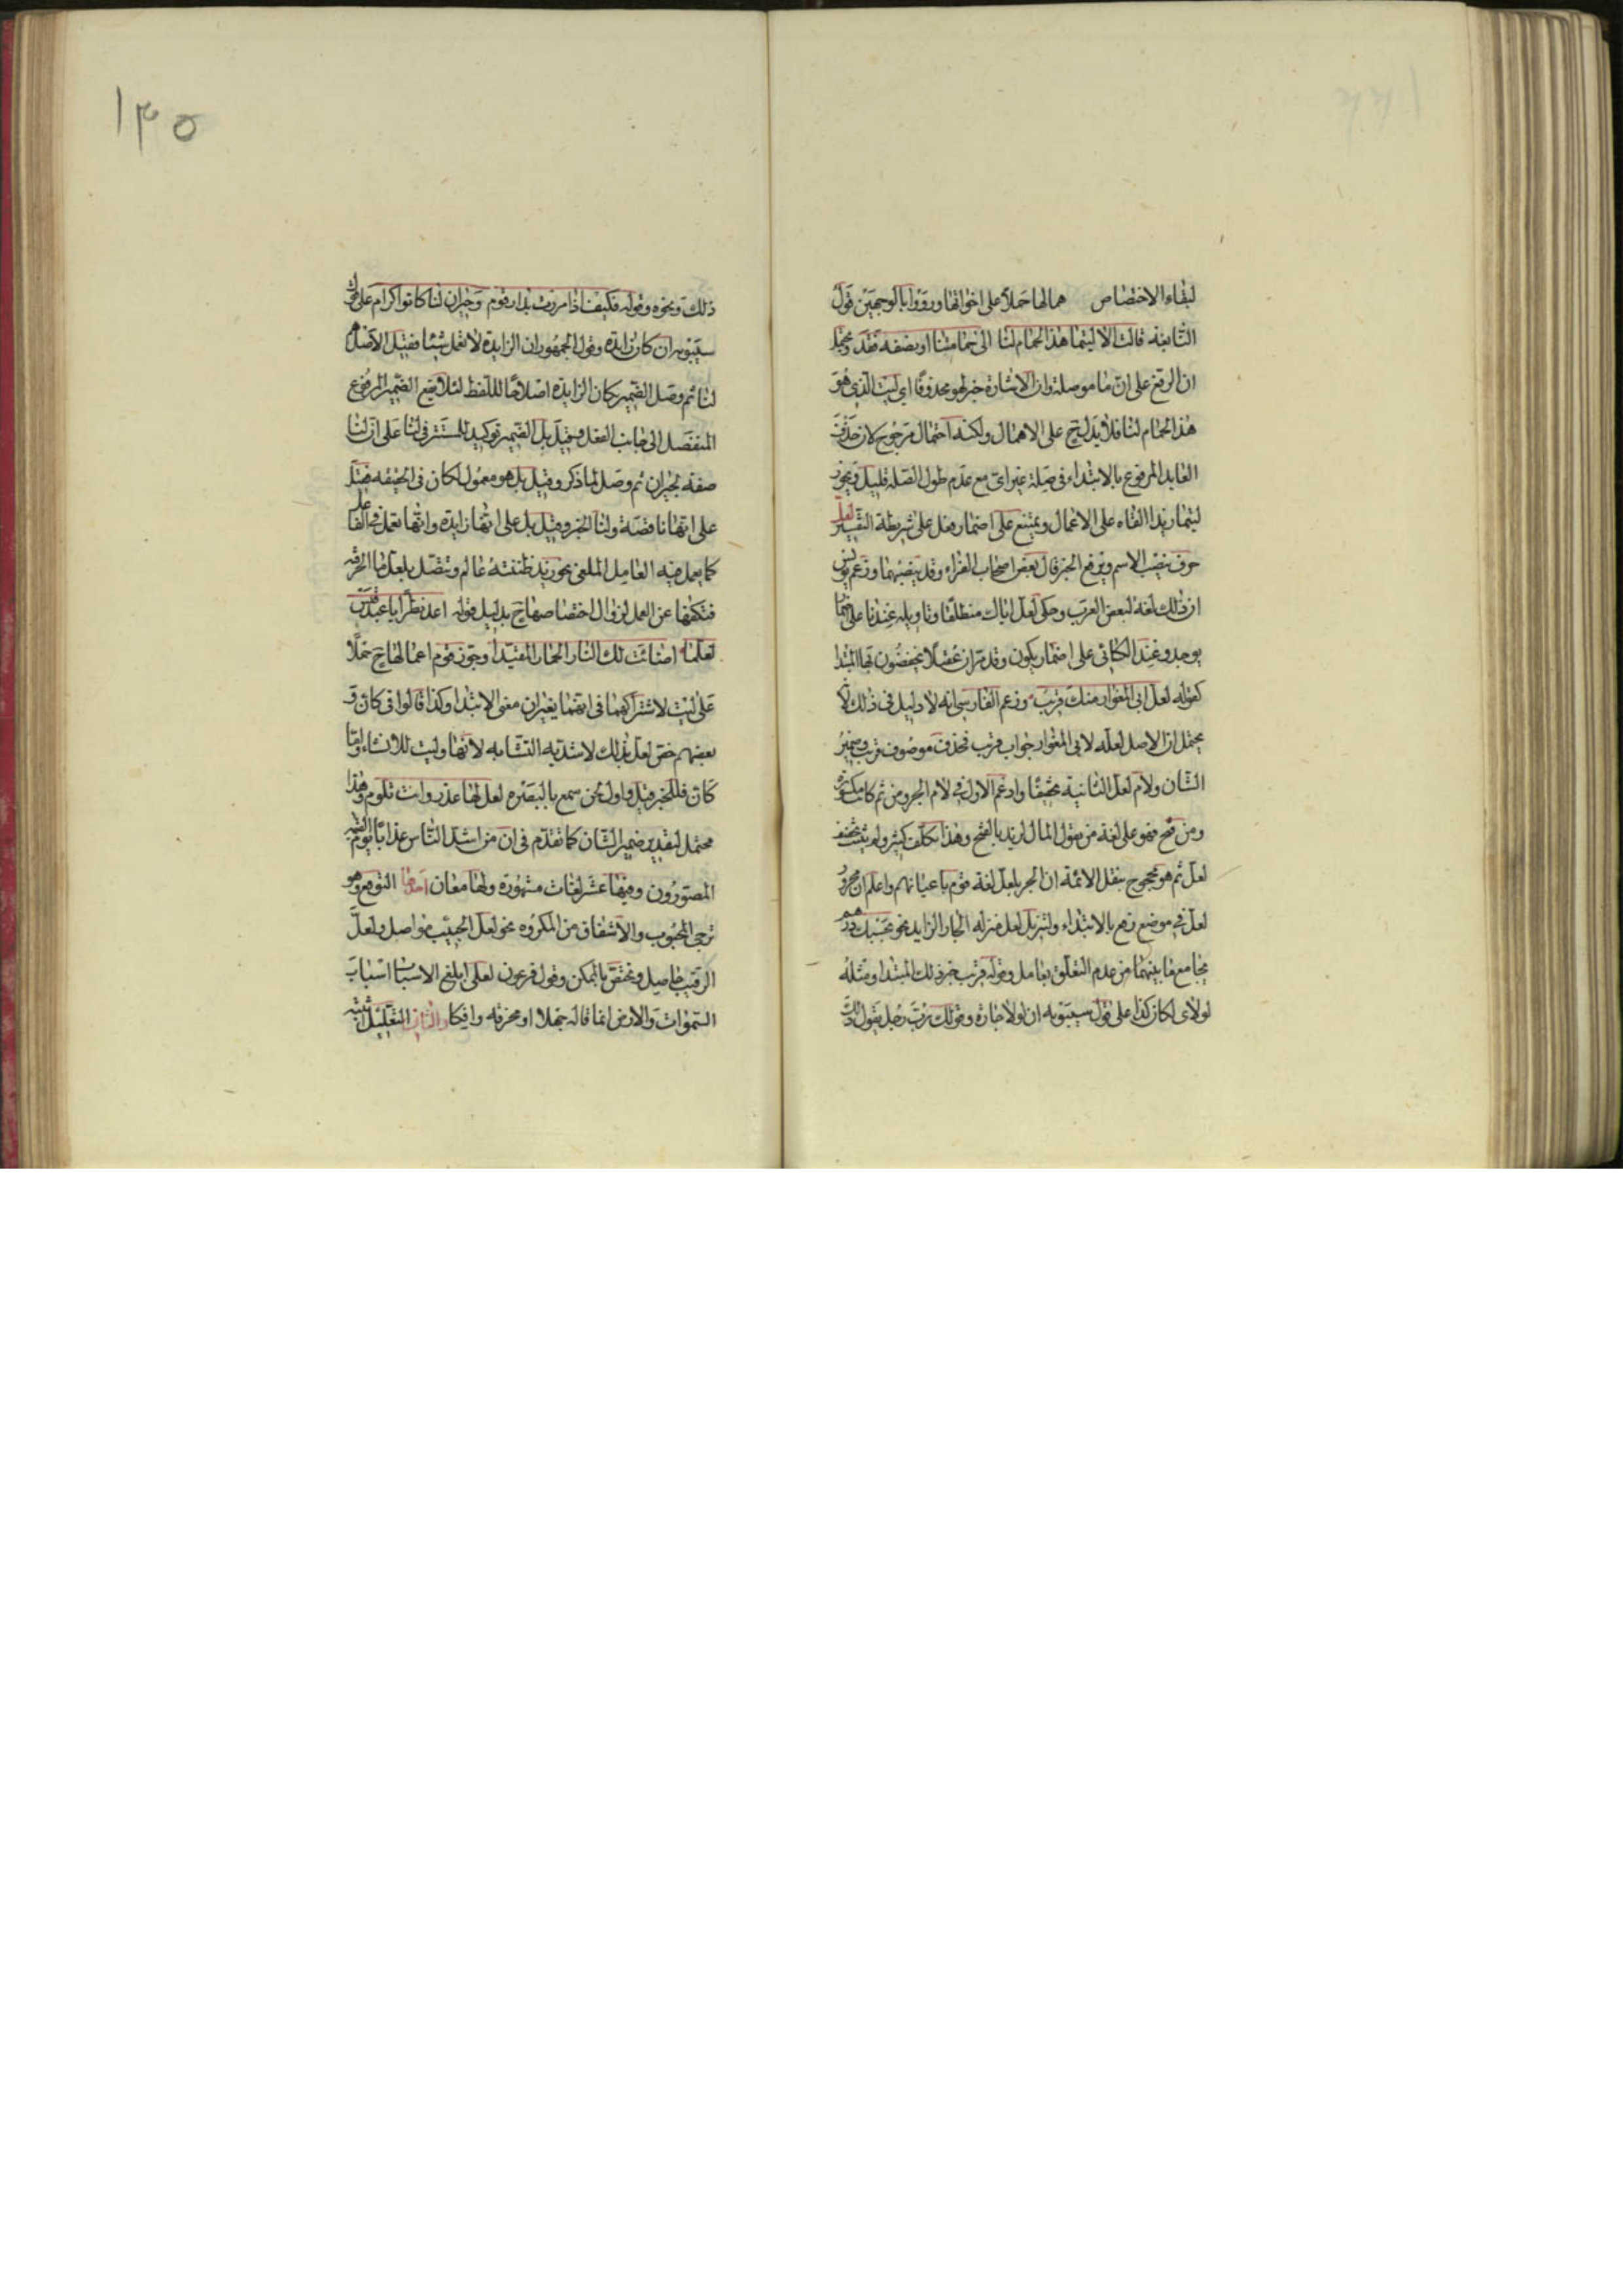 لبقاء الاختصاص همالها حملا على اخواتها ورووا بالوجهين قول
النابغة قالت الا ليتما هذا الحمام لنا الى حمامتنا او نصفه فقد ويحتمل
ان الرفع على ان ما موصلة وان الاشارة خبر لهو محذوفا اي ليت الذي هو
هذا الحمام لنا فلا يدل ح على الاهمال ولكنه احتمال مرجوح لان حذف
العايد المرفوع بالابتداء في صلة غير اي مع عدم طول الصلة قليل ويجوز
ليتما زيدا القاه على الاعمال ويمتنع على اضمار فعل على شريطة التفسير لعل
حرف ينصب الاسم ويرفع الخبر قال بعض اصحاب الفراء وقد ينصبهما وزعم يونس
ان ذلك لغة لبعض العرب وحكى لعل اباك منطلقا وتاويله عندنا على اضمار
يوجد وعند الكسائى على اضمار يكون وقد مر ان عقيلا يخفضون بها المبتدا
كقوله لعل ابى المغوار منك قريب وزعم الفارسى انه لا دليل فى ذلك لانه
يحتمل ان الاصل لعله لابى المغوار جواب قريب فحذف موصوف قريب وضمير
الشان ولام لعل الثانية تخفيفا وادغم الاولى في لام الجر ومن ثم كانت مكسورة
ومن فتح فهو على لغة من يقول المال لزيد بالفتح وهذا تكلف كثير ولم يثبت تخفيف
لعل ثم هو محجوج بنقل الائمة ان الجر بلعل لغة قوم باعيانهم واعلم ان مجرور
لعل في موضع رفع بالابتداء ولتنزيل لعل منزلة الجار الزايد نحو بحسبك درهم
بجامع ما بينهما من عدم التعلق بعامل وقوله قريب خبر ذلك المبتدا ومثله
لولاى لكان كذا على قول سيبويه ان لولا جارة وقولك رب رجل يقول ذلك
١٣٥
ذلك ونحوه وقوله فكيف اذا مررت بدار قوم وجيران لنا كانوا كرام على قول
سيبويه ان كان زايدة وقول الجمهور ان الزايدة لا تعمل شيئا فقيل الاصل هم
لنا ثم وصل الضمير بكان الزايدة اصلاحا للفظ لئلا يقع الضمير المرفوع
المنفصل الى جانب الفعل وقيل بل الضمير توكيد للمستتر في لنا على ان لنا
صفة لجيران ثم وصل لما ذكر وقيل بل هو معمول لكان فى الحقيقة فقيل
على انها ناقصة ولنا الخبر وقيل بل على انها زايدة وانها تعمل في الفاعل
كما يعمل فيه العامل الملغى نحو زيد ظننته عالم وتتصل بلعل ما الحرفية
فتكفها عن العمل لزوال اختصاصها ح بدليل قوله اعد نظرا يا عبد قيس
لعلما اضائت لك النار الحمار المقيدا وجوز قوم اعمالها ح حملا
على ليت لاشتراكهما فى انهما يغيران معنى الابتدا وكذا قالوا فى كان و
بعضهم خص لعل بذلك لاشدية التشابه لانها وليت للانشاء واما
كان فللخبر قيل واول لحن سمع بالبصرة لعل لها عذر وانت تلوم وهذا
محتمل لتقدير ضمير الشان كما تقدم فى ان من اشد الناس عذابا يوم القيمة
المصورون وفيها عشر لغات مشهورة ولها معان احدها التوقع وهو
ترجى المحبوب والاشفاق من المكروه نحو لعل الحبيب مواصل ولعل
الرقيب حاصل وتختص بالممكن وقول فرعون لعلى ابلغ الاسباب اسباب
السموات والارض انما قاله جهلا او مخرقة وافكا والثانى التعليل اثبته